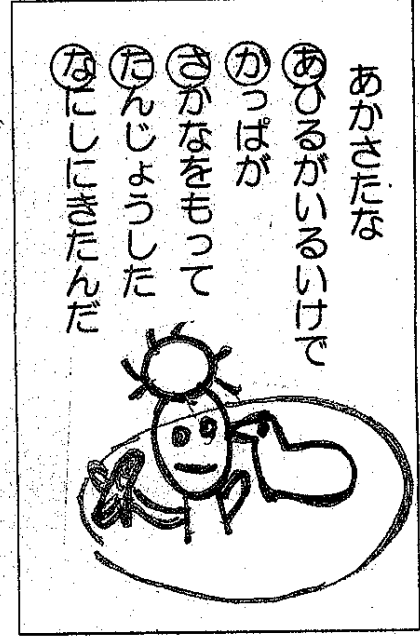 あかさたな
あひるがいるいけで
かっぱが
さかなをもって
たんじょうした
なにしにきたんだ